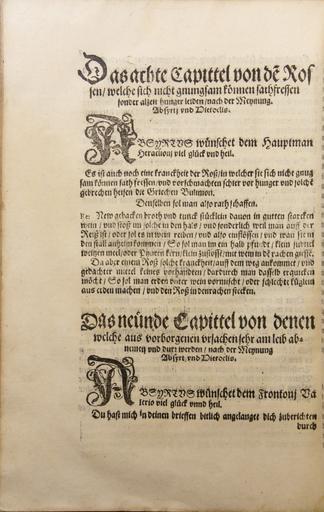 Das achte Capittel von dẽ Ros
sen/ welche sich nicht gnungsam können sathfressen
sonder alzen hunger leiden/ nach der Meynung.
Absyrtj vnd Hieroclis.
ABSYRTVS wünschet dem Hauptman
Heraclionj viel glück vnd heil.
Es ist auch noch eine kranckheit der Roß/ in welcher sie sich nicht gnug
sam können sath fressen/ vnd vorschmachten schier vor hunger vnd solche
gebrechen heissen die Griechen Bulimon.
Denselben sol man also rath schaffen.
Re: New gebacken broth vnd tunck stücklein dauon in gutten starcken
wein/ vnd stoß im solche in den hals/ vnd sonderlich weil man auff der
Reiß ist/ oder sol es in wein reiben/ vnd also einflössen/ vnd wan sie in
den stall anheim kommen/ So sol man im ein halb pfundt/ klein
weitzen meel/ oder kern/ klein zustossen/ mit wein in rachen giessen.
Da aber einem Roß solche kranckheit auff dem weg ankommet/ vnd
gedachter mittel keines vorhanden/ dardurch man dasselb erquicken
möcht/ So sol man erden vnter wein vormischt/ oder schlechte küglein
aus erden machen/ vnd den Roß in den rachen stecken.
Das neünde Capittel von denen
welche aus vorborgenen vrsachen sehr am leib ab-
nemen vnd durr werden/ nach der Meynung
Absyrtj vnd Hieroclis.
ABSYRTVS wünschet dem Frontonj Va
lerio viel glück vnnd heil.
Du hast mich in deinen brieffen bitlich angelanget dich zuberichten
durch